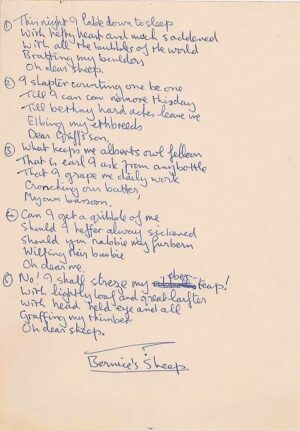 ① This night I lable down to sleep
With hefty heart and much saddened
With all the bubbles of the world
Bratting my boulders
Oh dear sheep.
② I slapter counting one be one
Till I can cow nomore thisday
Till bethny hard actes leave me
Elbing my ethbreeds
Dear Griff's son,
③ What keeps me alberts owl felloon
That is earl I ask from anybottle
That I grape me daily work
Cronching our batter,
My own bassoon.
④ Can I get a gribble of me
Should I heffer alway sickened
Should you nabbie my furbern
Wilfing their busbie
Oh dear me.
⑤ No! I shall streze my eber teap!
With lightly loaf and great larfter
With head held eye and all
Graffing my rhimber
Oh dear sheep.
Bernice's Sheep